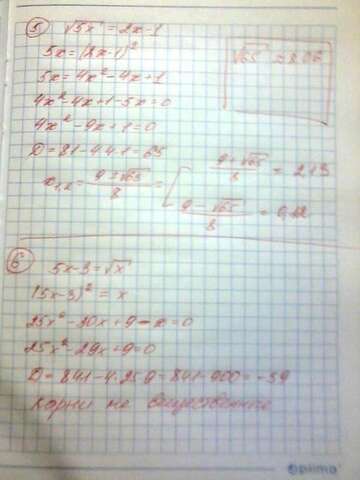 5 √5x = 2x-1
√65 ≈ 8.06
5x = (2x-1)²
5x = 4x²-4x+1
4x²-4x+1-5x=0
4x²-9x+1=0
D = 81-4·4·1 = 65
x₁,₂ = (9±√65)/8 =
(9+√65)/8 = 2,13
(9-√65)/8 = 0,12
6 5x-3=√x
(5x-3)² = x
25x²-30x+9-x=0
25x²-29x+9=0
D = 841-4·25·9 = 841-900 = -59
Корни не вещественные